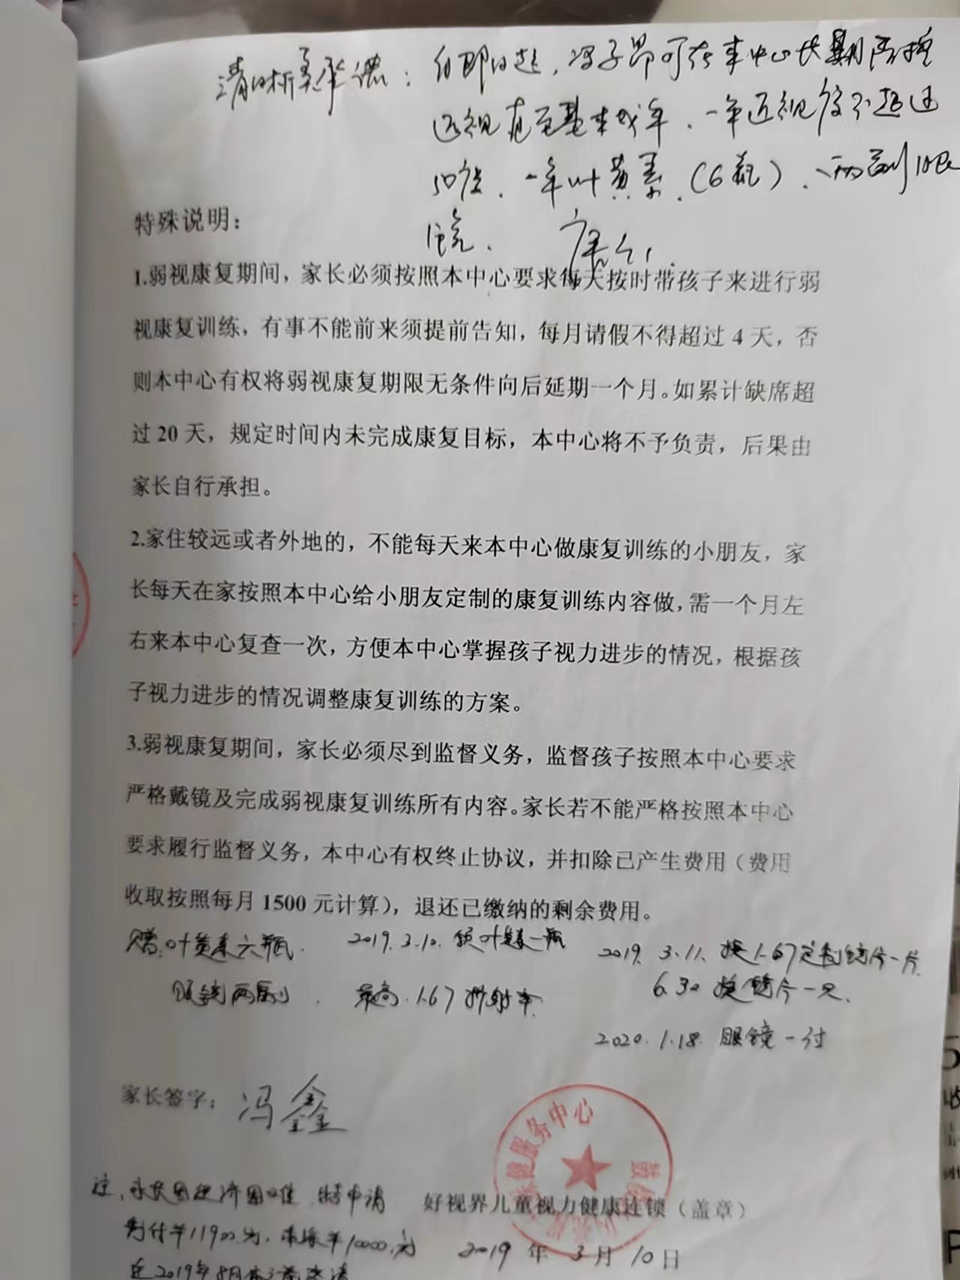 自即日起,冯子昂可在本中心长期防控
近视直至基本成年、一年近视度不超过
50度、一年叶黄素(6瓶)、两副
镜、
特殊说明:
1.弱视康复期间,家长必须按照本中心要求每天按时带孩子来进行弱
视康复训练,有事不能前来须提前告知,每月请假不得超过 4 天,否
则本中心有权将弱视康复期限无条件向后延期一个月。如累计缺席超
过 20 天,规定时间内未完成康复目标,本中心将不予负责,后果由
家长自行承担。
2.家住较远或者外地的,不能每天来本中心做康复训练的小朋友,家
长每天在家按照本中心给小朋友定制的康复训练内容做,需一个月左
右来本中心复查一次,方便本中心掌握孩子视力进步的情况,根据孩
子视力进步的情况调整康复训练的方案。
3.弱视康复期间,家长必须尽到监督义务,监督孩子按照本中心要求
严格戴镜及完成弱视康复训练所有内容。家长若不能严格按照本中心
要求履行监督义务,本中心有权终止协议,并扣除已产生费用(费用
收取按照每月 1500 元计算),退还已缴纳的剩余费用。
赠:叶黄素六瓶. 2019.3.10. 领叶黄素一瓶
2019. 3.11. 换1.67定制镜片一片.
眼镜两副. 最高1.67折射率.
6.30 换镜片一只.
2020.1.18. 眼镜一付
家长签字: 冯鑫
健服务中心
注、家长因经济困难 特申请
好视界儿童视力健康连锁(盖章)
暂付半11900元,本浴半10000元
2019 年 3 月 10 日
2019年8月